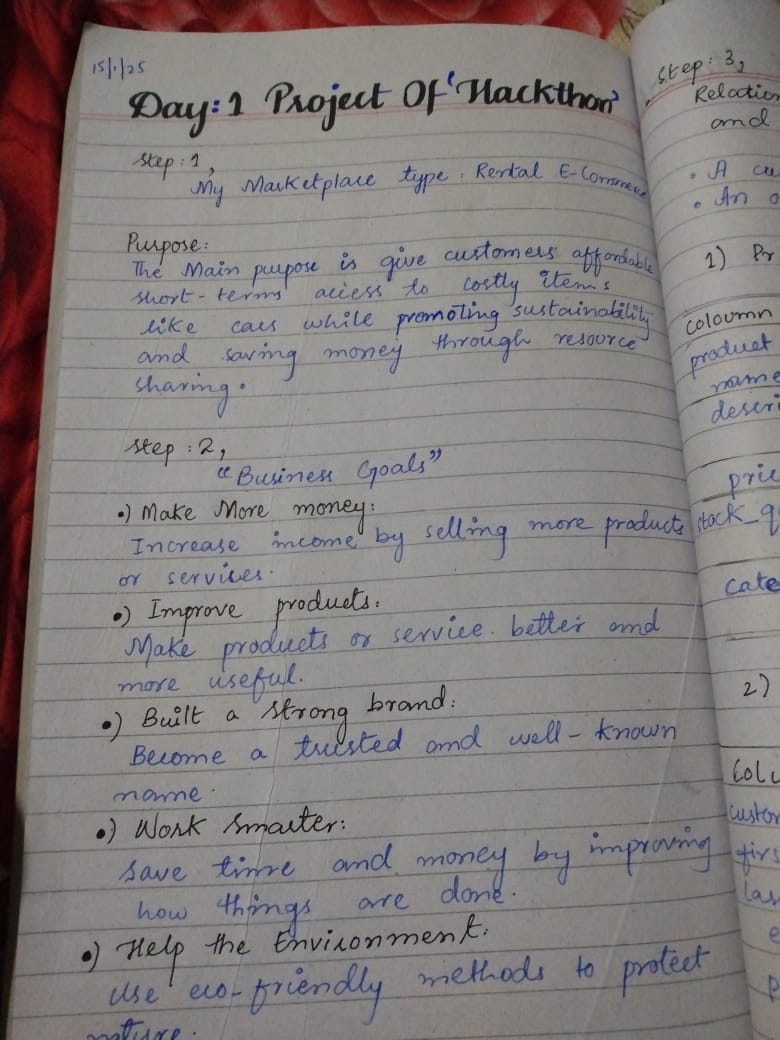 15/1/25
Day:1 Project Of 'Hackthon'
Step:1,
My Marketplace type. Rental E-Commerce
Purpose:
The Main purpose is give customers affordable
short-terms access to costly items
like cars while promoting sustainability
and saving money through resource
sharing.
Step:2,
"Business Goals"
•) Make More money:
Increase income by selling more products
or services.
•) Improve products:
Make products or service. better and
more useful.
•) Built a strong brand:
Become a trusted and well-known
name.
•) Work Smarter:
Save time and money by improving
how things are done.
•) Help the Environment:
Use eco-friendly methods to protect
nature.
Step:3,
Relation
and
• A cu
• An o
1) Pr
coloumn
product
name
descri
price
stock_q
cate
2)
Colu
custom
firs
las
e
p